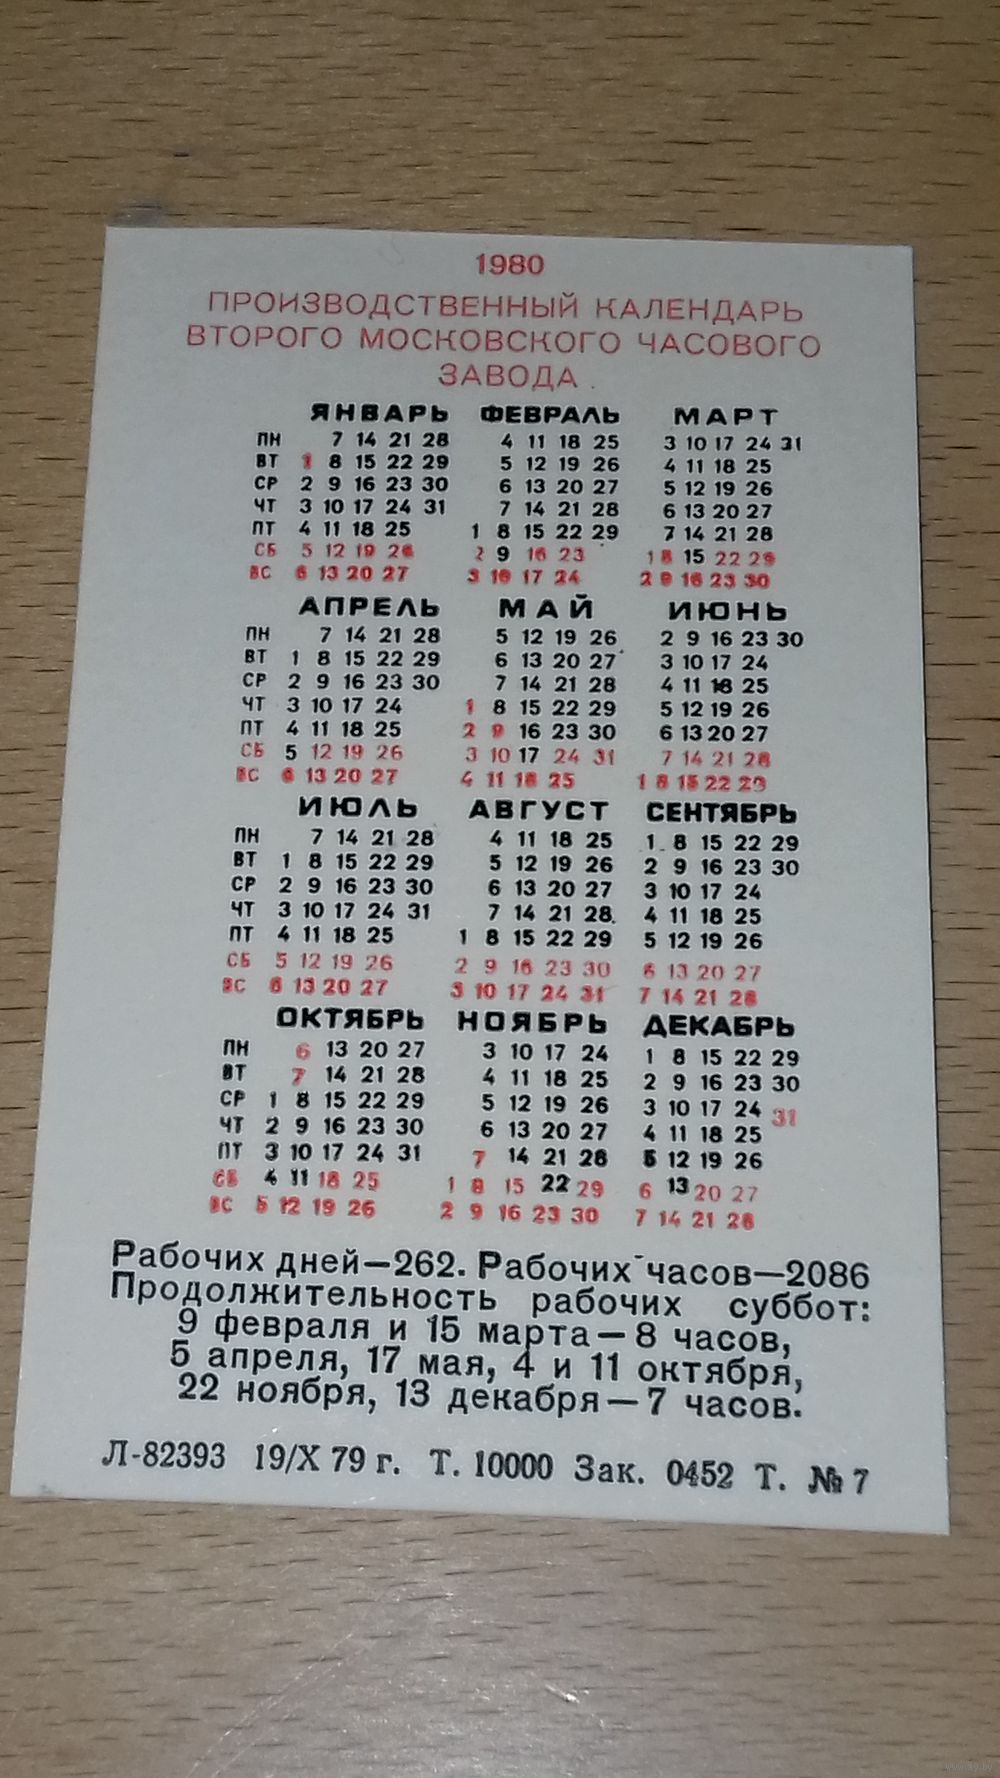 1980
ПРОИЗВОДСТВЕННЫЙ КАЛЕНДАРЬ
ВТОРОГО МОСКОВСКОГО ЧАСОВОГО
ЗАВОДА
ЯНВАРЬ ФЕВРАЛЬ МАРТ
ПН 7 14 21 28 4 11 18 25 3 10 17 24 31
ВТ 1 8 15 22 29 5 12 19 26 4 11 18 25
СР 2 9 16 23 30 6 13 20 27 5 12 19 26
ЧТ 3 10 17 24 31 7 14 21 28 6 13 20 27
ПТ 4 11 18 25 1 8 15 22 29 7 14 21 28
СБ 5 12 19 26 2 9 16 23 1 8 15 22 29
ВС 6 13 20 27 3 10 17 24 2 9 16 23 30
АПРЕЛЬ МАЙ ИЮНЬ
ПН 7 14 21 28 5 12 19 26 2 9 16 23 30
ВТ 1 8 15 22 29 6 13 20 27 3 10 17 24
СР 2 9 16 23 30 7 14 21 28 4 11 18 25
ЧТ 3 10 17 24 1 8 15 22 29 5 12 19 26
ПТ 4 11 18 25 2 9 16 23 30 6 13 20 27
СБ 5 12 19 26 3 10 17 24 31 7 14 21 28
ВС 6 13 20 27 4 11 18 25 1 8 15 22 29
ИЮЛЬ АВГУСТ СЕНТЯБРЬ
ПН 7 14 21 28 4 11 18 25 1 8 15 22 29
ВТ 1 8 15 22 29 5 12 19 26 2 9 16 23 30
СР 2 9 16 23 30 6 13 20 27 3 10 17 24
ЧТ 3 10 17 24 31 7 14 21 28 4 11 18 25
ПТ 4 11 18 25 1 8 15 22 29 5 12 19 26
СБ 5 12 19 26 2 9 16 23 30 6 13 20 27
ВС 6 13 20 27 3 10 17 24 31 7 14 21 28
ОКТЯБРЬ НОЯБРЬ ДЕКАБРЬ
ПН 6 13 20 27 3 10 17 24 1 8 15 22 29
ВТ 7 14 21 28 4 11 18 25 2 9 16 23 30
СР 1 8 15 22 29 5 12 19 26 3 10 17 24 31
ЧТ 2 9 16 23 30 6 13 20 27 4 11 18 25
ПТ 3 10 17 24 31 7 14 21 28 5 12 19 26
СБ 4 11 18 25 1 8 15 22 29 6 13 20 27
ВС 5 12 19 26 2 9 16 23 30 7 14 21 28
Рабочих дней—262. Рабочих часов—2086
Продолжительность рабочих суббот:
9 февраля и 15 марта—8 часов,
5 апреля, 17 мая, 4 и 11 октября,
22 ноября, 13 декабря—7 часов.
Л-82393 19/X 79 г. Т. 10000 Зак. 0452 Т. № 7